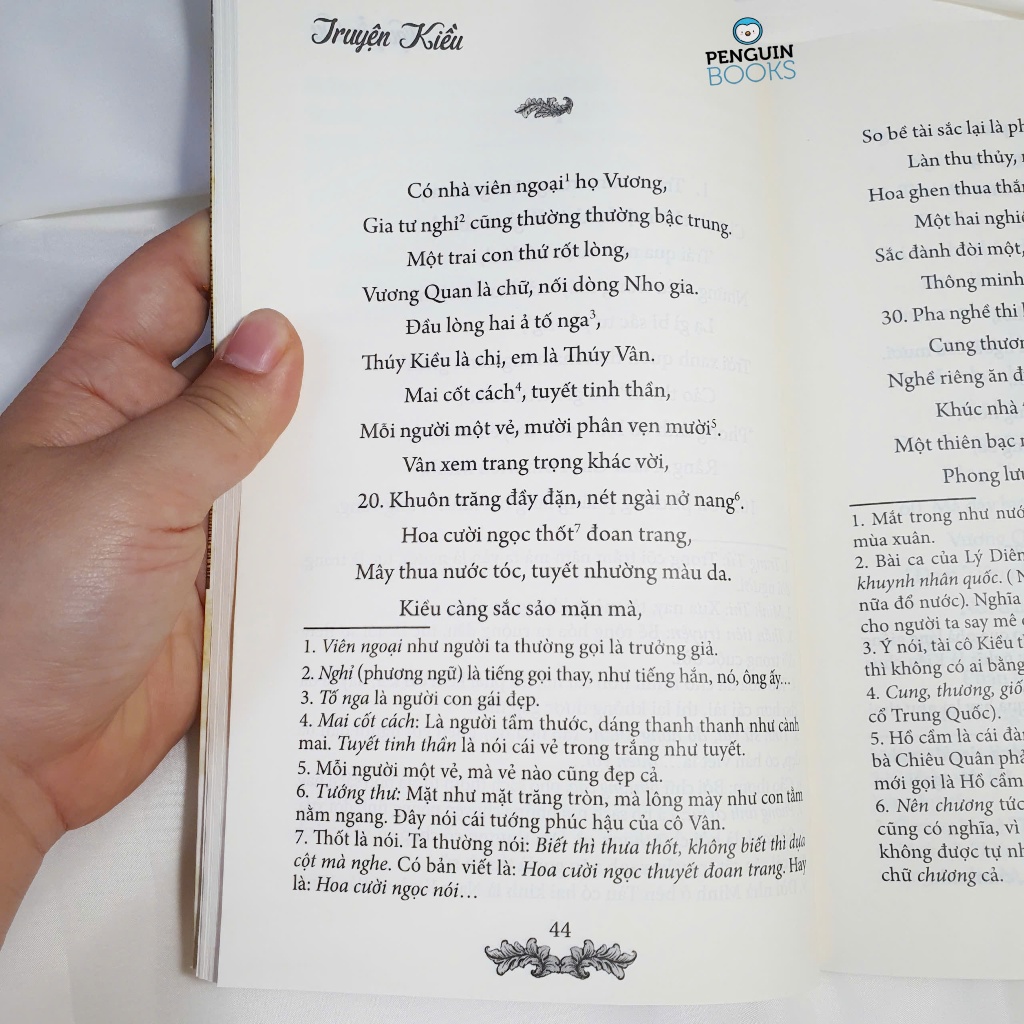 Truyện Kiều
PENGUIN
BOOKS
Có nhà viên ngoại¹ họ Vương,
Gia tư nghỉ² cũng thường thường bậc trung.
Một trai con thứ rốt lòng,
Vương Quan là chữ, nối dòng Nho gia.
Đầu lòng hai ả tố nga³,
Thúy Kiều là chị, em là Thúy Vân.
Mai cốt cách⁴, tuyết tinh thần,
Mỗi người một vẻ, mười phân vẹn mười⁵.
Vân xem trang trọng khác vời,
20. Khuôn trăng đầy đặn, nét ngài nở nang⁶.
Hoa cười ngọc thốt⁷ đoan trang,
Mây thua nước tóc, tuyết nhường màu da.
Kiều càng sắc sảo mặn mà,
1. Viên ngoại như người ta thường gọi là trưởng giả.
2. Nghỉ (phương ngữ) là tiếng gọi thay, như tiếng hắn, nó, ông ấy...
3. Tố nga là người con gái đẹp.
4. Mai cốt cách: Là người tầm thước, dáng thanh thanh như cành
mai. Tuyết tinh thần là nói cái vẻ trong trắng như tuyết.
5. Mỗi người một vẻ, mà vẻ nào cũng đẹp cả.
6. Tướng thư: Mặt như mặt trăng tròn, mà lông mày như con tằm
nằm ngang. Đây nói cái tướng phúc hậu của cô Vân.
7. Thốt là nói. Ta thường nói: Biết thì thưa thốt, không biết thì dựa
cột mà nghe. Có bản viết là: Hoa cười ngọc thuyết đoan trang. Hay
là: Hoa cười ngọc nói…
44
So bề tài sắc lại là
Làn thu thủy,
Hoa ghen thua
Một hai
Sắc đành đòi một,
Thông minh
30. Pha nghề thi
Cung
Nghề riêng ăn
Khúc nhà
Một thiên bạc
Phong
1. Mắt trong như
mùa xuân.
2. Bài ca của Lý
khuynh nhân quốc. (
nữa đổ nước). Nghĩa
cho người ta say mê
3. Ý nói, tài cô Kiều
thì không có ai bằng
4. Cung, thương,
cổ Trung Quốc).
5. Hồ cầm là cái
bà Chiêu Quân
mới gọi là Hồ cầm
6. Nên chương tức
cũng có nghĩa, vì
không được tự
chữ chương cả.